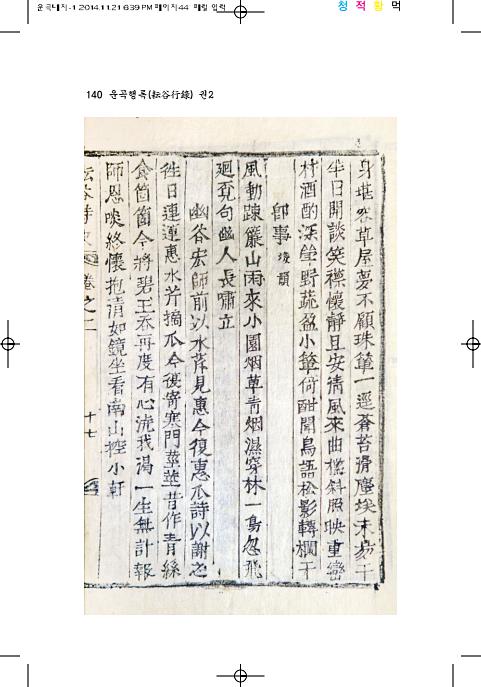 운곡내지-1 2014.11.21 6:39 PM 페이지44 메일 입력
청 적 황 먹
140 운곡행록(耘谷行錄) 권2
身堪容草屋夢不顧珠簞一逕蒼苔滑塵埃未易干
半日開談笑襟懷靜且安淸風來曲檻斜照映重巒
村酒酌深瑩野蔬盈小簞倚酣聞鳥語松影轉欄干
卽事 後韻
風動踈簾山雨來小園烟草靑烟濕穿林一鳥忽飛
廻覓句幽人長嘯立
幽谷宏師前以水芹見惠今復惠瓜詩以謝之
徃日連連惠水芹摘瓜今復寄寒門莖莖昔作靑絲
食箇箇今將碧玉呑再度有心流我渴一生無計報
師恩啖終懷抱淸如鏡坐看南山控小軒
耘谷詩史 卷之二 十七